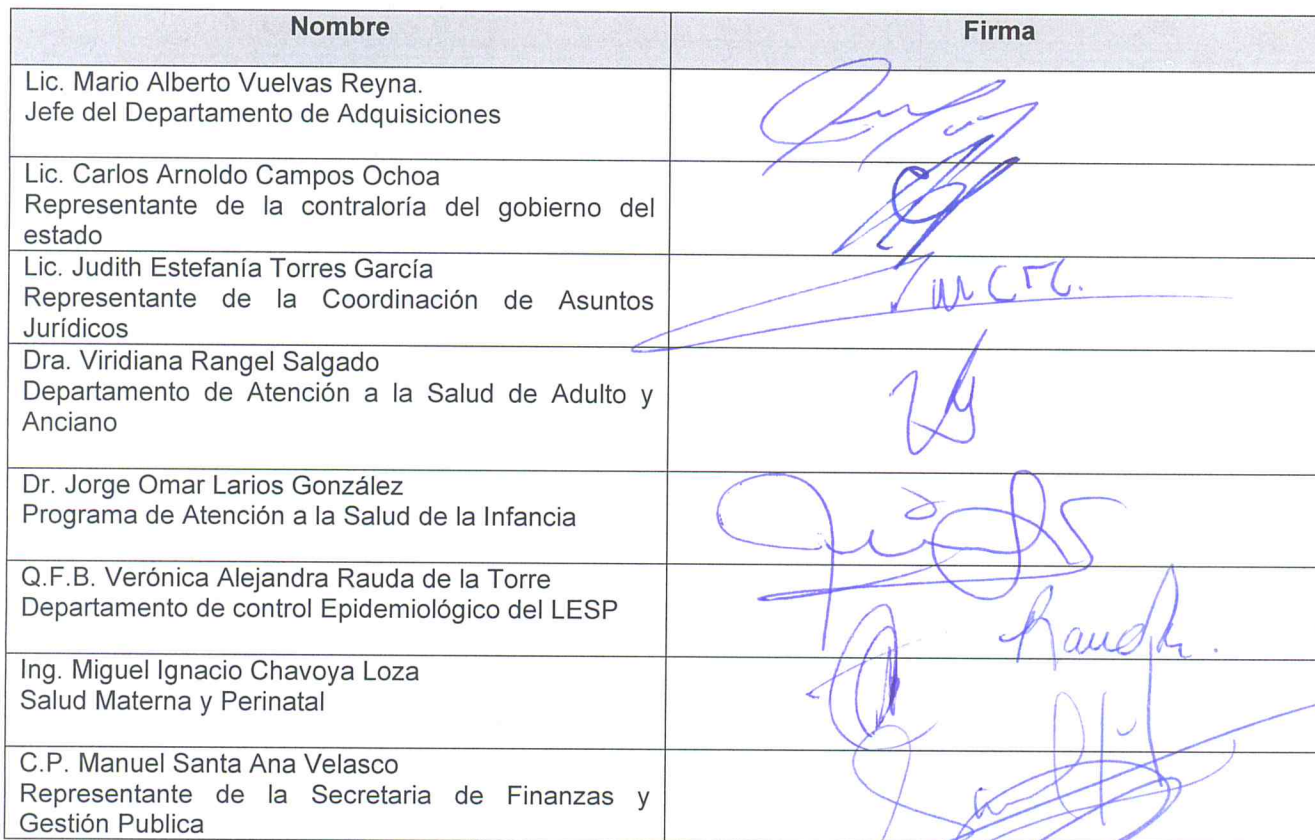 Nombre
Firma
Lic. Mario Alberto Vuelvas Reyna.
Jefe del Departamento de Adquisiciones
Lic. Carlos Arnoldo Campos Ochoa
Representante de la contraloría del gobierno del
estado
Lic. Judith Estefanía Torres García
Representante de la Coordinación de Asuntos
Jurídicos
Dra. Viridiana Rangel Salgado
Departamento de Atención a la Salud de Adulto y
Anciano
Dr. Jorge Omar Larios González
Programa de Atención a la Salud de la Infancia
Q.F.B. Verónica Alejandra Rauda de la Torre
Departamento de control Epidemiológico del LESP
Ing. Miguel Ignacio Chavoya Loza
Salud Materna y Perinatal
C.P. Manuel Santa Ana Velasco
Representante de la Secretaria de Finanzas y
Gestión Publica